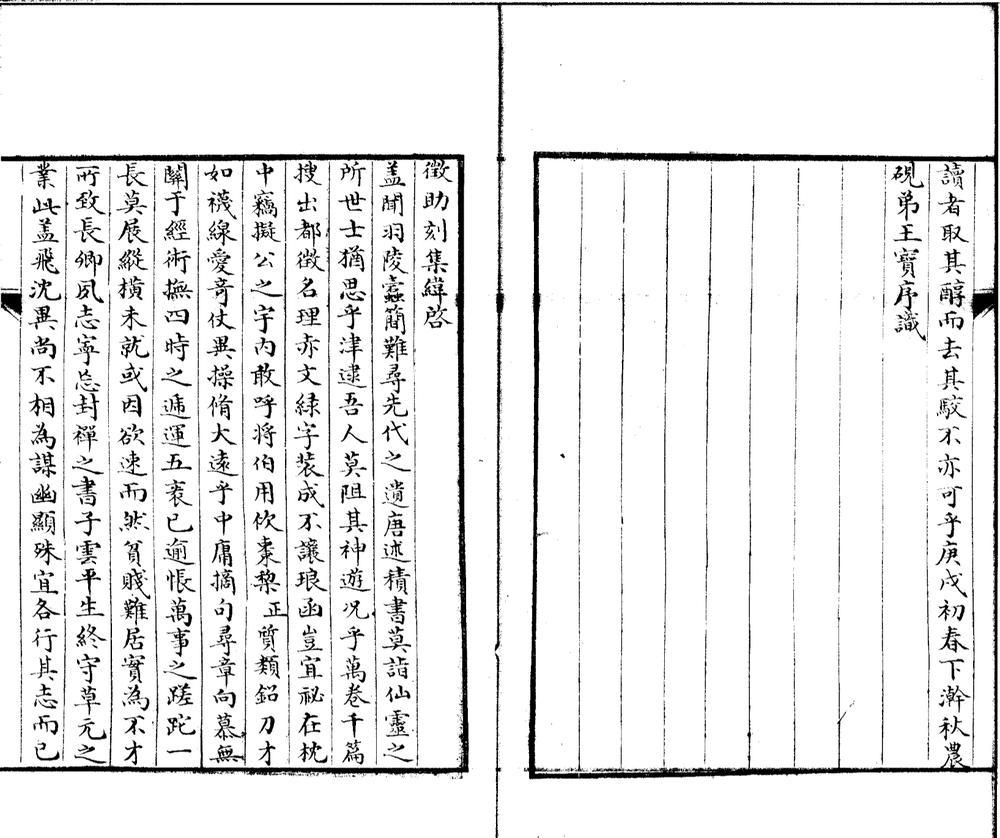 讀者取其醇而去其駮不亦可乎庚戌初春下澣秋農
硯弟王寶序識
徵助刻集緯啓
盖聞羽陵蠧簡難尋先代之遺唐述積書莫詣仙靈之
所世士猶思乎津逮吾人莫阻其神遊况乎萬卷千篇
搜出都徵名理赤文緑字装成不讓琅函豈宜祕在枕
中竊擬公之宇内敢呼将伯用佽棗棃正質類鉛刀才
如襪線愛竒仗異操脩大遠乎中庸摘句尋章向慕無
關于經術撫四時之遞運五袠已逾悵萬事之蹉跎一
長莫展縱横未就或因欲速而然貧賤難居實為不才
所致長卿夙志寧忘封禪之書子雲平生終守草元之
業此盖飛沈異尚不相為謀幽顯殊宜各行其志而已